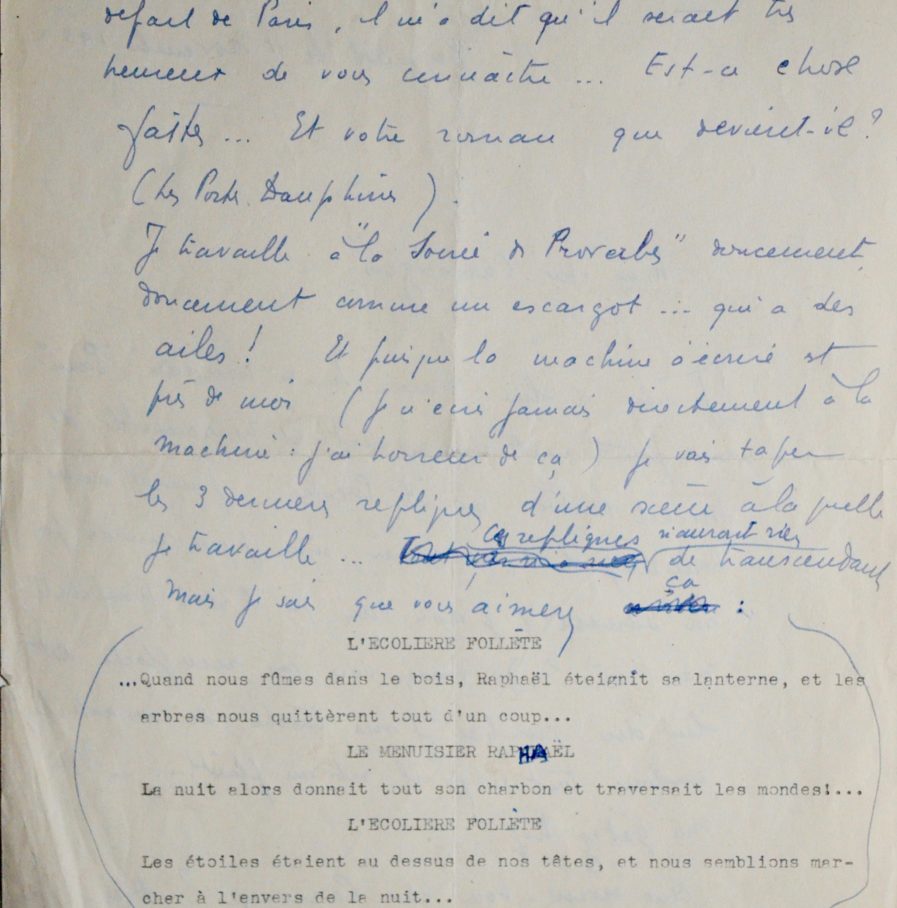 départ de Paris, il m'a dit qu'il serait très
heureux de vous connaître... Est-ce chose
faite... Et votre roman que devient-il?
(Les Portes Dauphines).
Je travaille à "la Soirée des Proverbes" doucement,
doucement comme un escargot... qui a des
ailes! Et puisque la machine à écrire est
près de moi (je n'écris jamais directement à la
machine: j'ai horreur de ça) je vais taper
les 3 dernières répliques d'une scène à laquelle
je travaille... Ces repliques n'auront rien de transcendant
Mais je sais que vous aimerez ça :
L'ECOLIERE FOLLÈTE
...Quand nous fûmes dans le bois, Raphaël éteignit sa lanterne, et les
arbres nous quittèrent tout d'un coup...
LE MENUISIER RAPHAËL
La nuit alors donnait tout son charbon et traversait les mondes!...
L'ECOLIERE FOLLÈTE
Les étoiles étaient au dessus de nos têtes, et nous semblions mar-
cher à l'envers de la nuit...